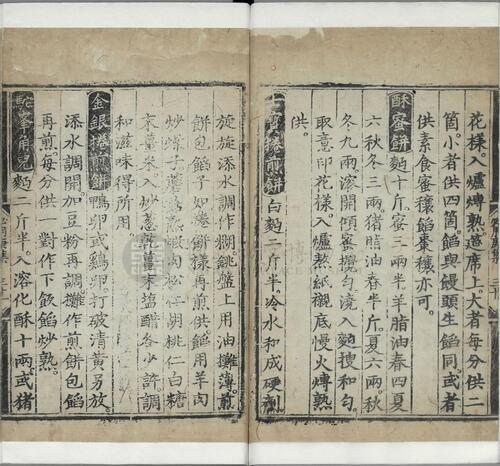 花樣。入爐熁熟。遶席上。大者每分供二
箇。小者供四箇。餡與饅頭生餡同。或者
供素食蜜穰餡棗穰亦可。
酥蜜餅 麪十斤。蜜三兩半。羊脂油春四夏
六秋冬三兩。猪脂油春半斤。夏六兩。秋
冬九兩。溶開傾蜜攪勻澆入麪搜和勻。
取意印花樣。入爐熬紙襯底慢火熁熟
供。
七寶捲煎餅 白麪二斤半。冷水和成硬劑
旋旋添水調作糊。銚盤上用油攤薄煎
餅包餡子如捲餅樣再煎供。餡用羊肉
炒燥子蘑菇熟蝦肉松仁胡桃仁白糖
末薑米。入炒葱乾薑末塩醋各少許調
和滋味得所用
金銀捲煎餅 鴨卵或鷄卵打破清黃另放
添水調開加豆粉再調攤作煎餅包餡
再煎每分供一對作下飲餡炒熟。
駝峯角兒 麪二斤半。入溶化酥十兩。或猪